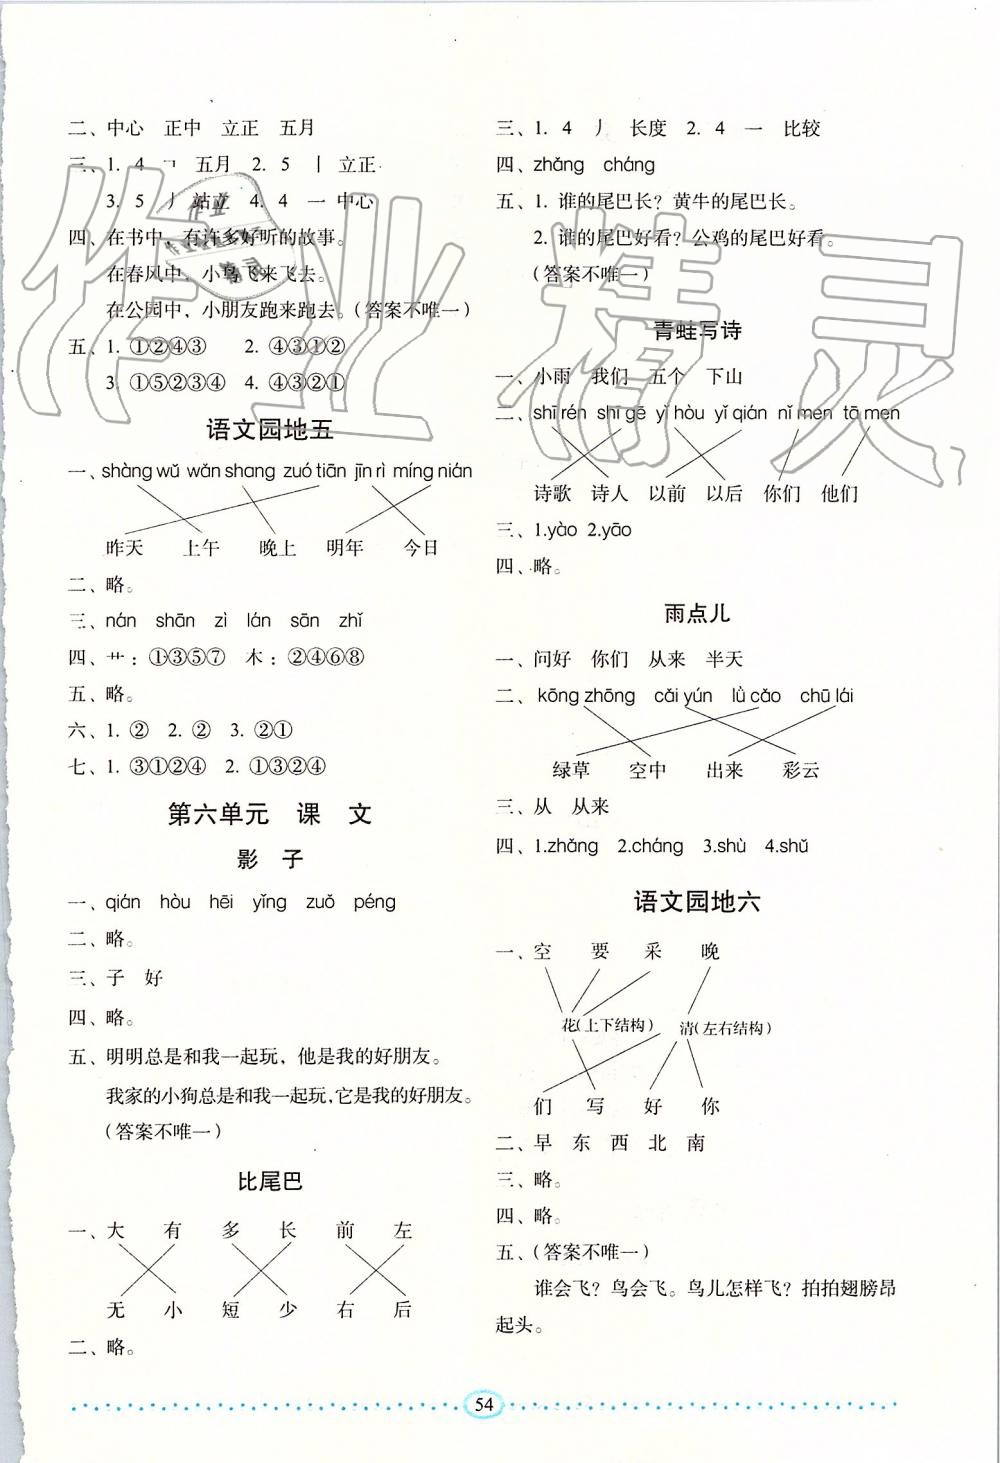 二、中心　正中　立正　五月
三、1. 4 ㇕ 五月 2. 5 丨 立正
3. 5 丿 站立 4. 4 一 中心
四、在书中，有许多好听的故事。
在春风中，小鸟飞来飞去。
在公园中，小朋友跑来跑去。（答案不唯一）
五、1. ①②④③　2. ④③①②
3. ①⑤②③④　4. ④③②①
语文园地五
一、shàng wǔ wǎn shang zuó tiān jīn rì míng nián
昨天　上午　晚上　明年　今日
二、略。
三、nán shān zì lán sān zhǐ
四、艹：①③⑤⑦　木：②④⑥⑧
五、略。
六、1. ② 2. ② 3. ②①
七、1. ③①②④ 2. ①③②④
第六单元　课　文
影　子
一、qián hòu hēi yǐng zuǒ péng
二、略。
三、子　好
四、略。
五、明明总是和我一起玩，他是我的好朋友。
我家的小狗总是和我一起玩，它是我的好朋友。
（答案不唯一）
比尾巴
一、大　有　多　长　前　左
无　小　短　少　右　后
二、略。
三、1. 4 丿 长度 2. 4 一 比较
四、zhǎng cháng
五、1. 谁的尾巴长？黄牛的尾巴长。
2. 谁的尾巴好看？公鸡的尾巴好看。
（答案不唯一）
青蛙写诗
一、小雨　我们　五个　下山
二、shī rén shī gē yǐ hòu yǐ qián nǐ men tā men
诗歌　诗人　以前　以后　你们　他们
三、1.yào 2.yāo
四、略。
雨点儿
一、问好　你们　从来　半天
二、kōng zhōng cǎi yún lǜ cǎo chū lái
绿草　空中　出来　彩云
三、从　从来
四、1.zhǎng 2.cháng 3.shù 4.shǔ
语文园地六
一、空　要　采　晚
花（上下结构）　清（左右结构）
们　写　好　你
二、早　东　西　北　南
三、略。
四、略。
五、（答案不唯一）
谁会飞？鸟会飞。鸟儿怎样飞？拍拍翅膀昂
起头。
54
作业精灵